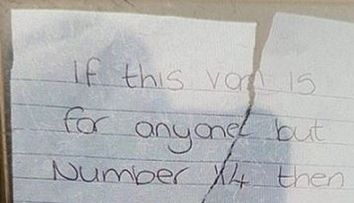 If this van is
for anyone but
Number 14 then